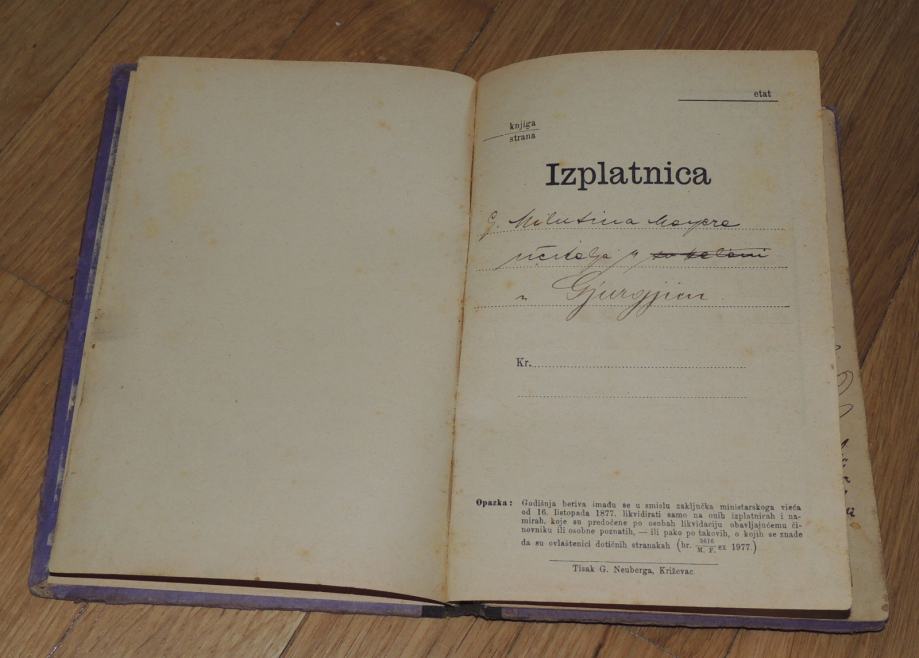 etat
knjiga
strana
Izplatnica
G. Milutina Mayera
učitelja u
u Gjurgjicu
Kr.
Opazka: Godišnja beriva imadu se u smislu zaključka ministarskoga vieća
od 16. listopada 1877. likvidirati samo na onih izplatnicah i na-
mirah, koje su predočene po osobah likvidaciju obavljajućemu či-
novniku ili osobne poznatih, — ili pako po takovih, o kojih se znade
da su ovlaštenici dotičnih stranakah (br. 5616/M. F. ex 1977.)
Tisak G. Neuberga, Križevac